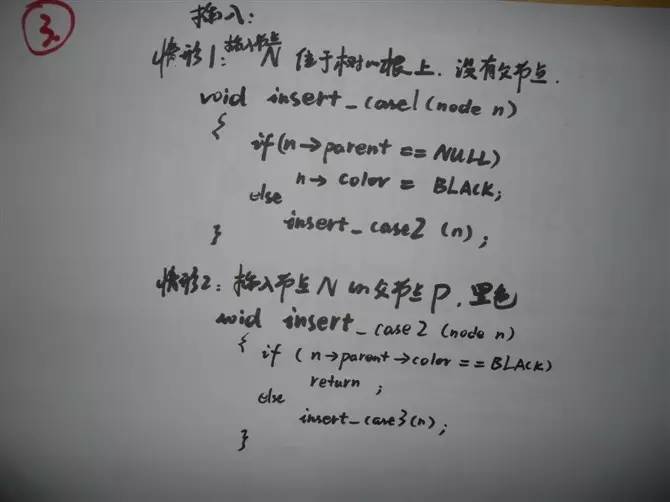 3.
插入：
情形1：插入节点N 位于树的根上，没有父节点.
void insert_case1(node n)
{
if(n→parent == NULL)
n→color = BLACK;
else
insert_case2 (n);
}
情形2：插入节点N的父节点P，黑色
void insert_case2 (node n)
{ if (n→parent→color == BLACK)
return ;
else
insert_case3(n);
}